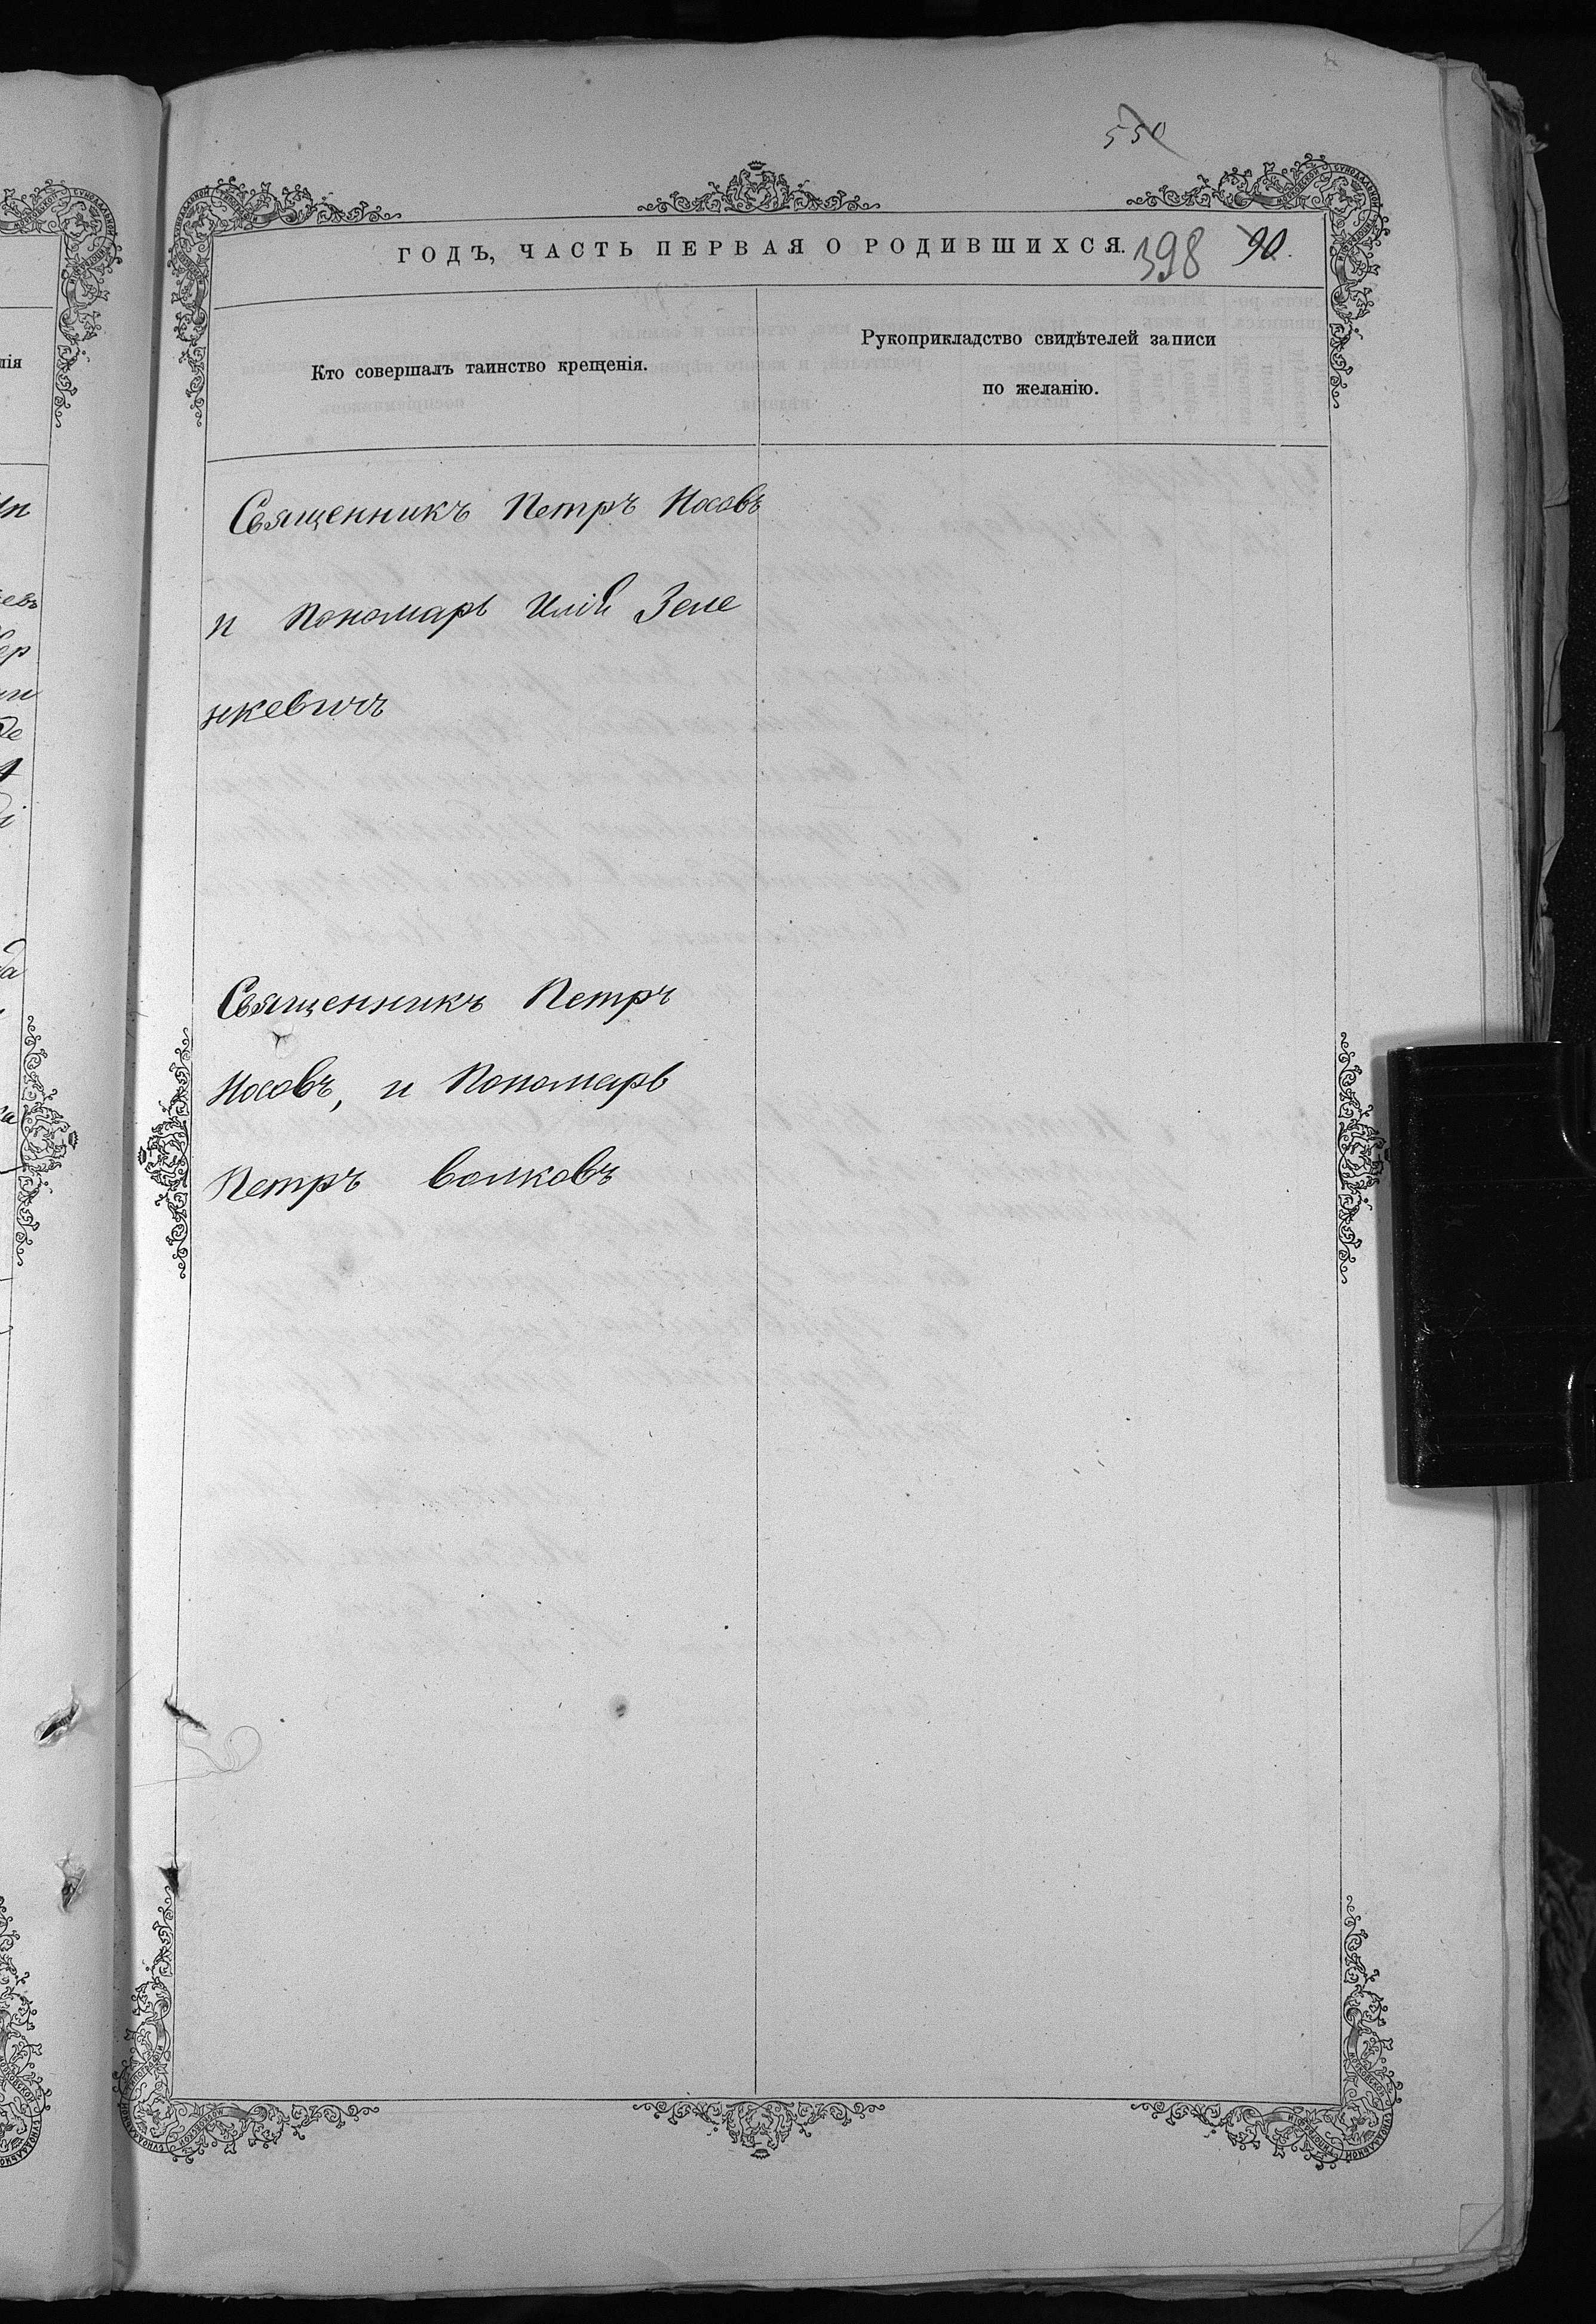 550
ГОДЪ, ЧАСТЬ ПЕРВАЯ О РОДИВШИХСЯ. 398 90.
Кто совершалъ таинство крещенія.
Рукоприкладство свидѣтелей записи
по желанію.
Священникъ Петръ Носовъ
и Пономарь Илій Зеле
нкевичъ
Священникъ Петръ
Носовъ, и Пономарь
Петръ волковъ